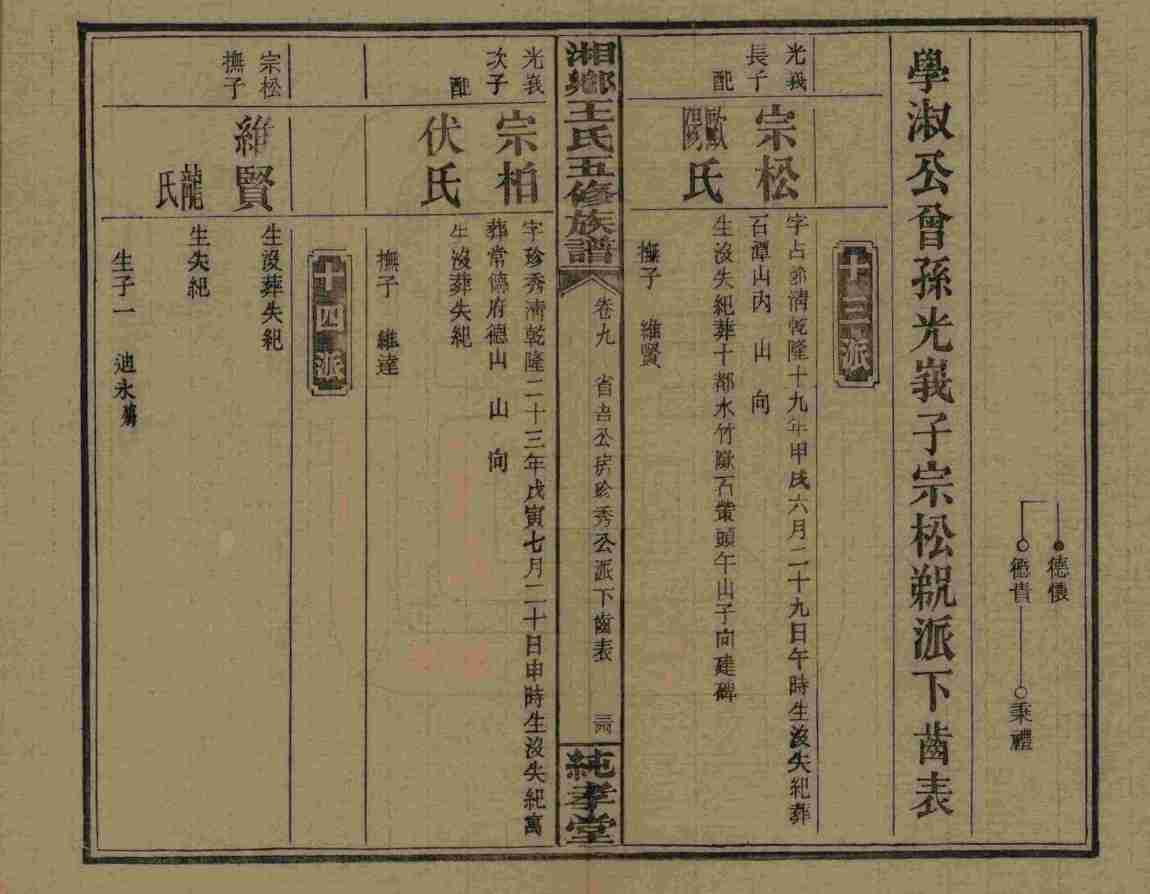 德懷
德貴
秉禮
學淑公曾孫光峩子宗松貺派下齒表
十三派
光峩長子
宗松
字占鄉清乾隆十九年甲戌六月二十九日午時生沒失紀葬
石潭山內 山 向
配
歐陽氏
生沒失紀葬十都水竹隊石螢頭午山子向建碑
撫子 維賢
湘鄉王氏五修族譜
卷九 省吾公房珍秀公派下齒表
純孝堂
光峩次子
宗柏
字珍秀清乾隆二十三年戊寅七月二十日申時生沒失紀寓
葬常德府德山 山 向
配
伏氏
生沒葬失紀
撫子 維達
十四派
宗松撫子
維賢
生沒葬失紀
龍氏
生失紀
生子一 迪永